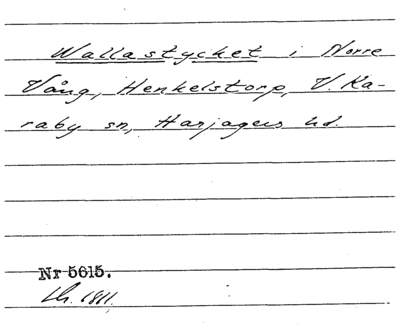 Wallastycket i Norre
Vång, Henkelstorp, V. Ka-
raby sn, Harjagers hd.
Nr 5615.
1811.